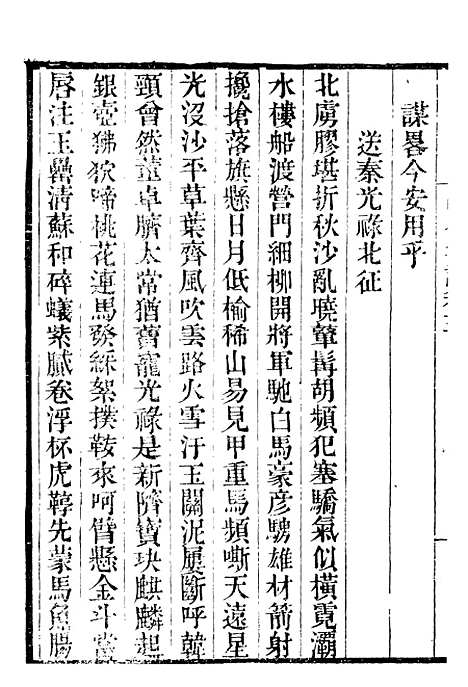 謀畧今安用乎
送秦光祿北征
北虜膠堪折秋沙亂曉鼙髯胡頻犯塞驕氣似橫霓灞
水樓船渡營門細柳開將軍馳白馬豪彥騁雄材箭射
攙搶落旗懸日月低榆稀山易見甲重馬頻嘶天遠星
光沒沙平草葉齊風吹雲路火雪汙玉關泥屢斷呼韓
頸曾然董卓臍太常猶舊寵光祿是新隮寶玦麒麟起
銀壺狒狖啼桃花連馬發綵絮撲鞍來呵臂懸金斗當
唇注玉罍清蘇和碎蟻紫膩卷浮杯虎鞟先蒙馬魚腸